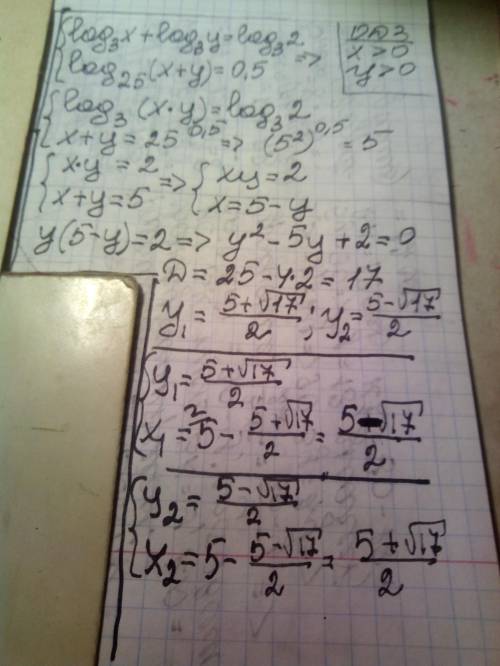 {log₃x + log₃y = log₃2
{log₂₅(x+y) = 0,5 =>
ОДЗ
x > 0
y > 0
{log₃(x·y) = log₃2
{x+y = 25^0,5 => (5²)^0,5 = 5
{x·y = 2
{x+y = 5 => {xy = 2
{x = 5 - y
y(5-y) = 2 => y² - 5y + 2 = 0
D = 25 - 4·2 = 17
y₁ = (5+√17)/2 ; y₂ = (5-√17)/2
{y₁ = (5+√17)/2
{x₁ = 5 - (5+√17)/2 = (5-√17)/2
{y₂ = (5-√17)/2
{x₂ = 5 - (5-√17)/2 = (5+√17)/2